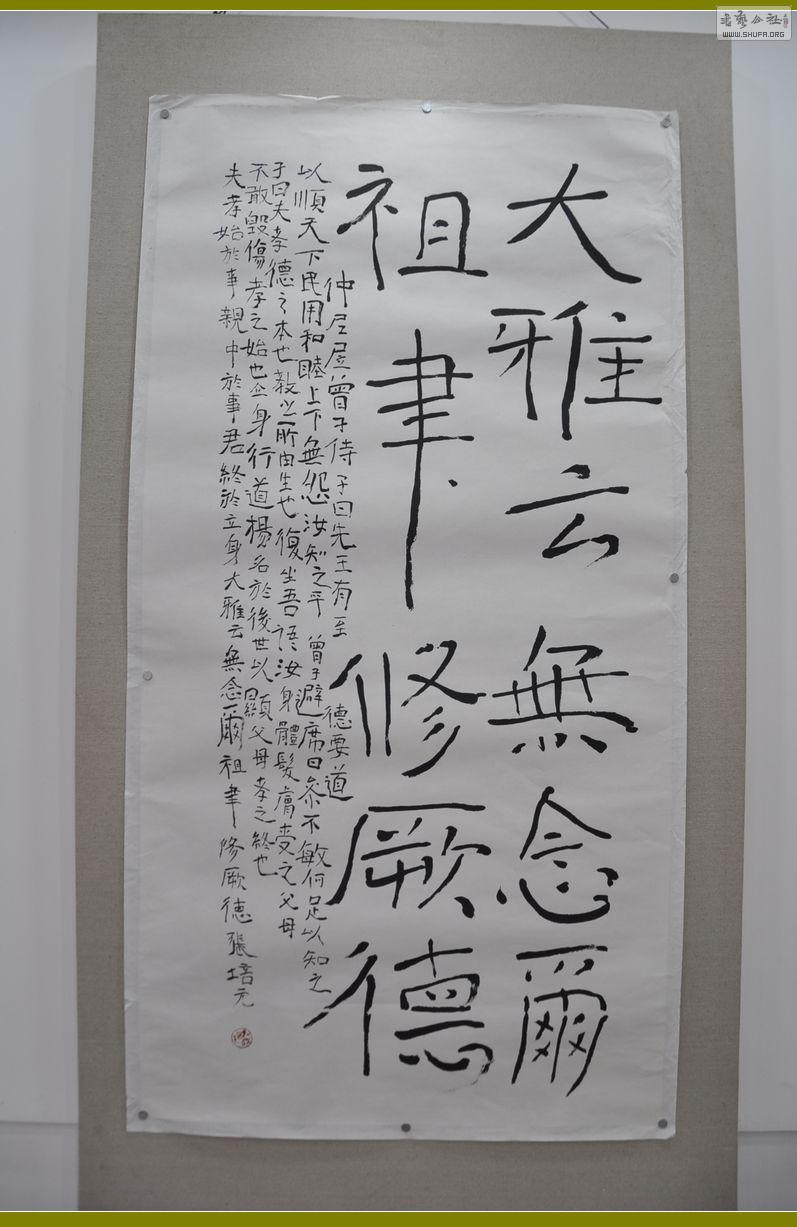 大雅云無念爾
祖聿修厥德
仲尼居曾子侍子曰先王有至德要道
以順天下民用和睦上下無怨汝知之乎曾子避席曰參不敏何足以知之
子曰夫孝德之本也教之所由生也復坐吾語汝身體髮膚受之父母
不敢毀傷孝之始也立身行道楊名於後世以顯父母孝之終也
夫孝始於事親中於事君終於立身大雅云無念爾祖聿修厥德張培元
WWW.SHUFA.ORG